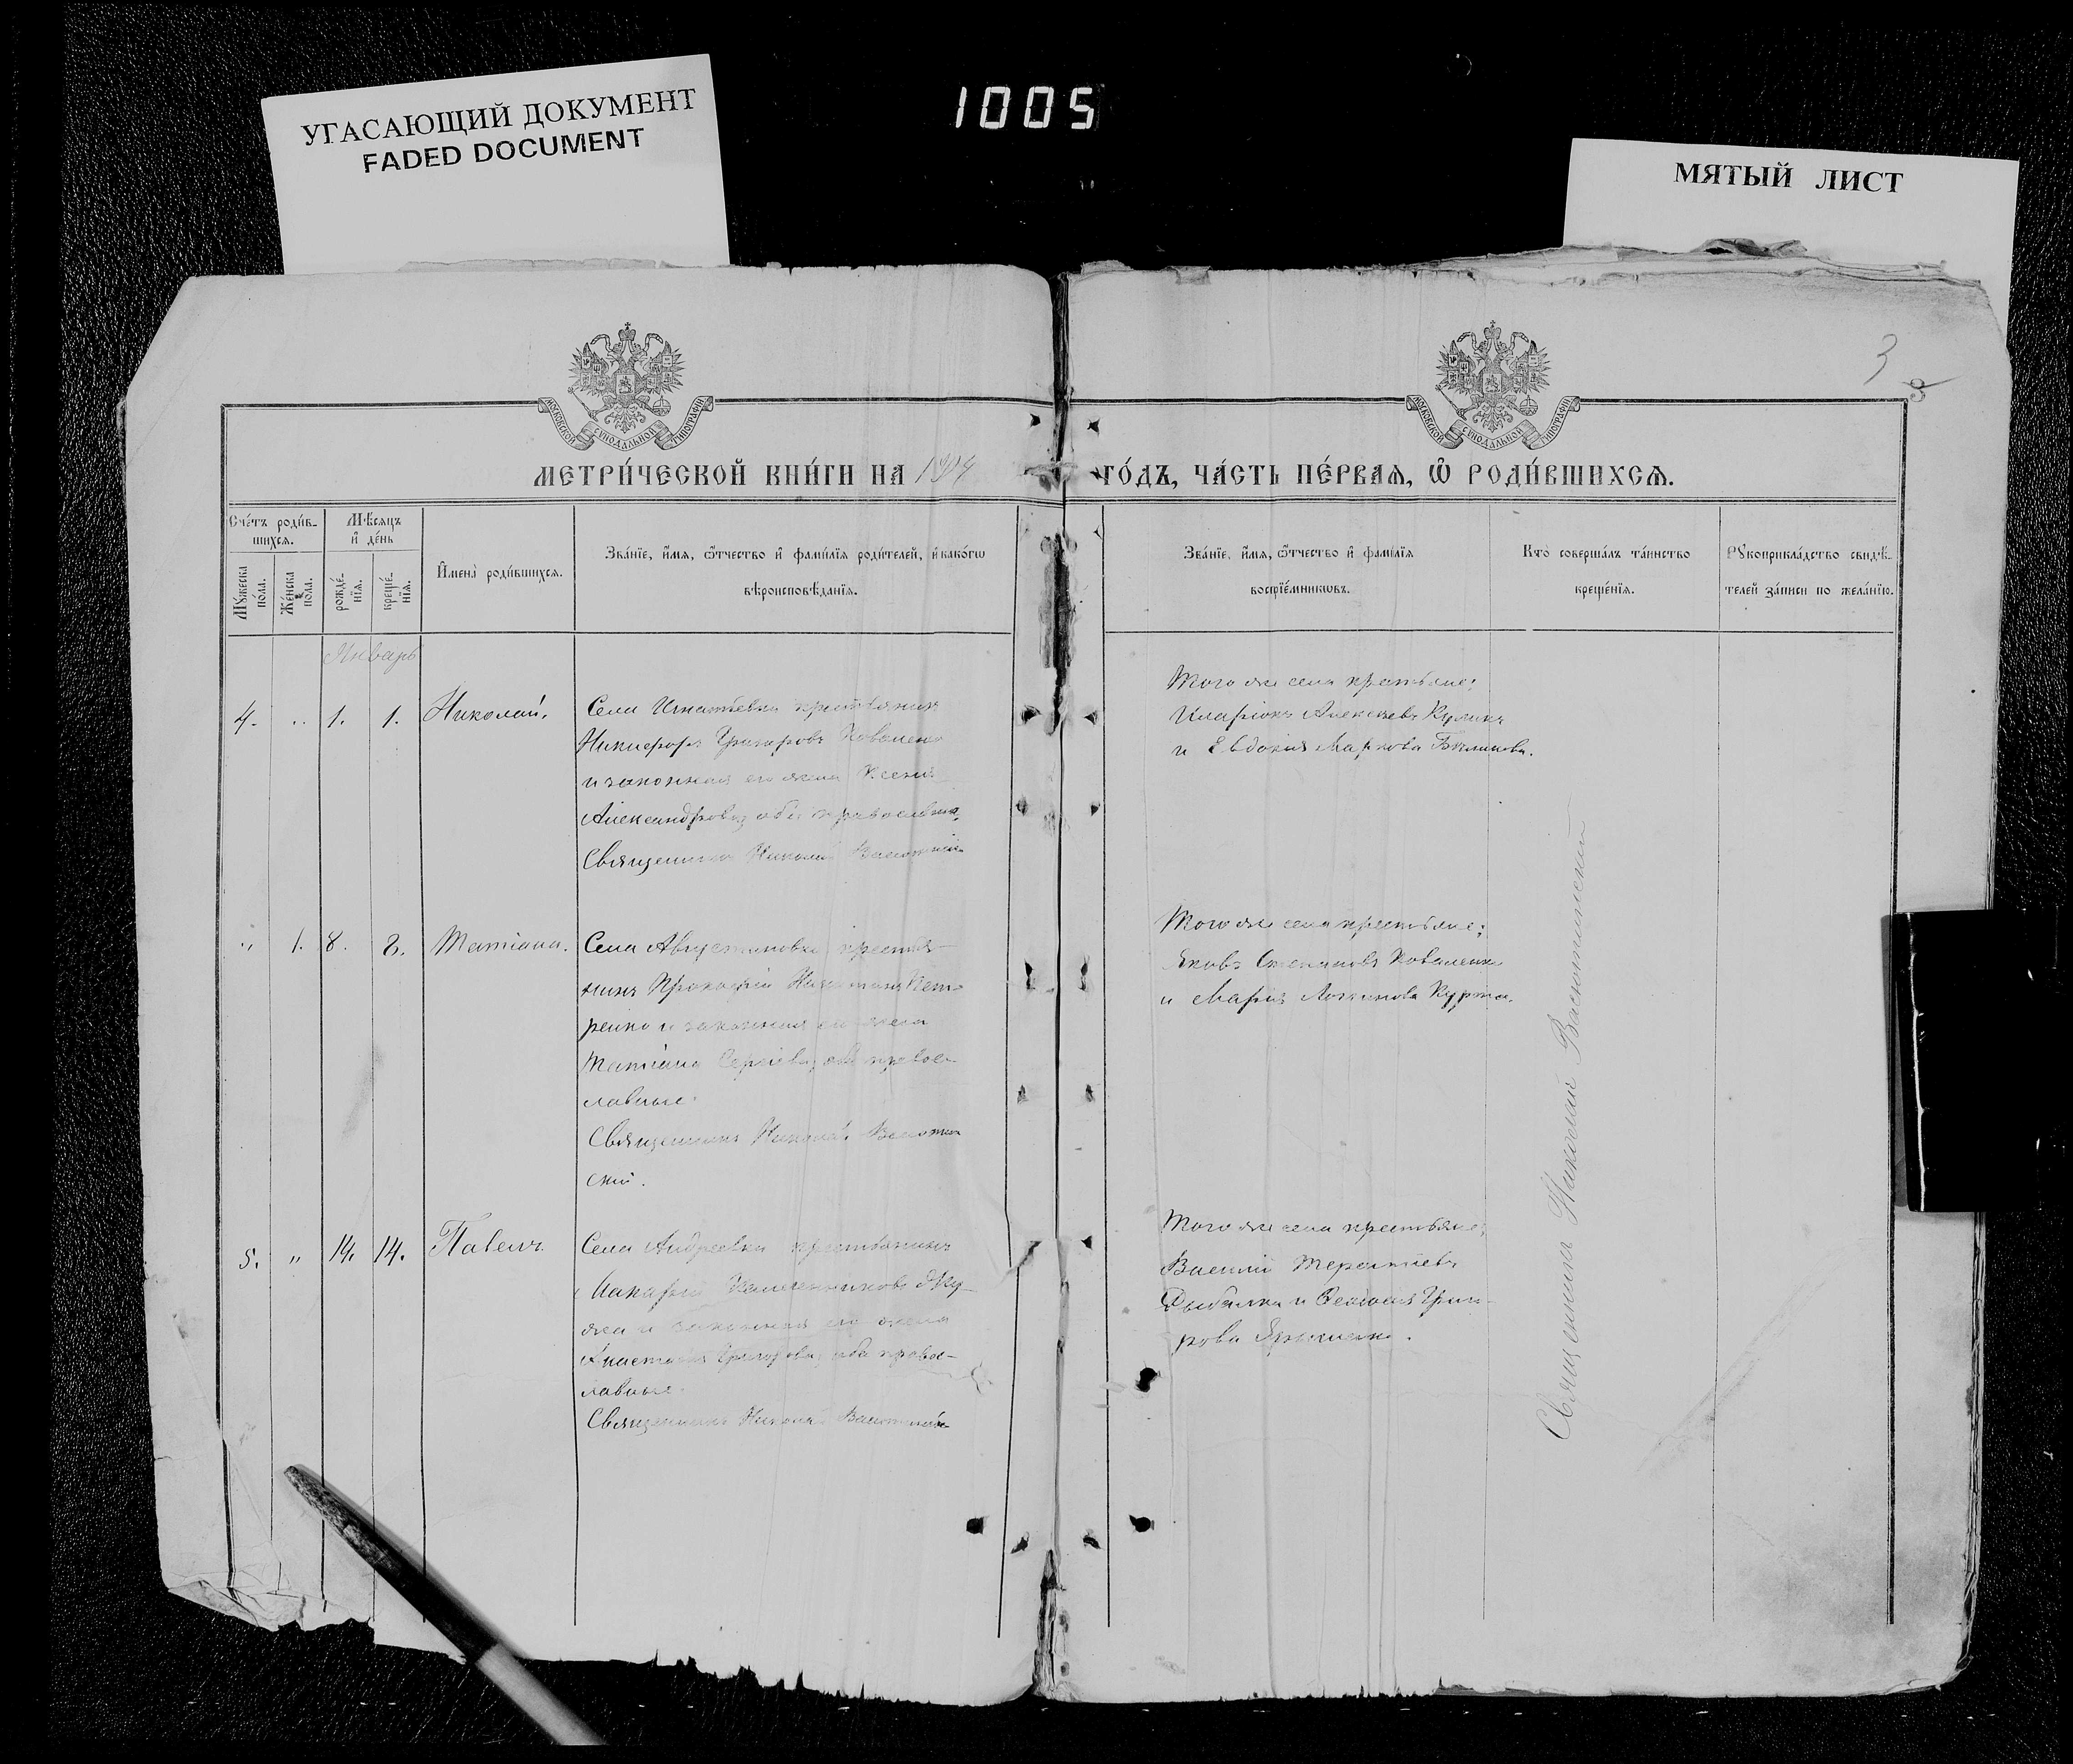 УГАСАЮЩИЙ ДОКУМЕНТ
FADED DOCUMENT
1005
МЯТЫЙ ЛИСТ
3
МОСКОВСКОЙ СѴНОДАЛЬНОЙ ТИПОГРАФІИ
МОСКОВСКОЙ СѴНОДАЛЬНОЙ ТИПОГРАФІИ
МЕТРИ́ЧЕСКОЙ КНИ́ГИ НА
ГО́ДЪ, ЧА́СТЬ ПЕ́РВАѦ, Ѡ҆ РОДИ́ВШИХСѦ.
Сче́тъ роди́в-
шихсѧ.
Мꙋ́жеска по́ла.
Же́нска по́ла.
Мѣ́сѧцъ
и҆ де́нь
рожде́-нїѧ.
креще́-нїѧ.
И҆мена̀ роди́вшихсѧ.
Зва́нїе, и҆́мѧ, ѻ҆́тчество и҆ фами́лїѧ роди́телей, и҆ како́гѡ
вѣроисповѣ́данїѧ.
Зва́нїе, и҆́мѧ, ѻ҆́тчество и҆ фами́лїѧ
воспрїе́мникѡвъ.
Кто̀ соверша́лъ та́инство
креще́нїѧ.
Рꙋкоприкла́дство свидѣ́-
телей за́писи по жела́нїю.
Январь
4. " 1. 1. Николай.
Села Игнатьевки крестьянинъ
Никифоръ Григоровъ Коваленко
и законная его жена Ксенія
Александрова, оба православные
Священникъ Николай
Того же села крестьяне:
Иларіонъ Алексѣевъ Куликъ
и Евдокія Маркова
" 1. 8. 8. Татіана.
Села Августиновки крестья-
нинъ Прокофій Пет-
ренко и законная его жена
Татіана Сергіева, оба правос-
лавные.
Священникъ Николай
скій.
Того же села крестьяне:
Яковъ Степановъ Коваленко
и Марія
5. " 14. 14. Павелъ
Села Андреевки крестьянинъ
Макарій
жа и законная его жена
Анастасія Григорова, оба правос-
лавные.
Священникъ Николай
Того же села крестьяне:
Василій Терентіевъ
и Ѳеодосія Григо-
рова
Священникъ Николай